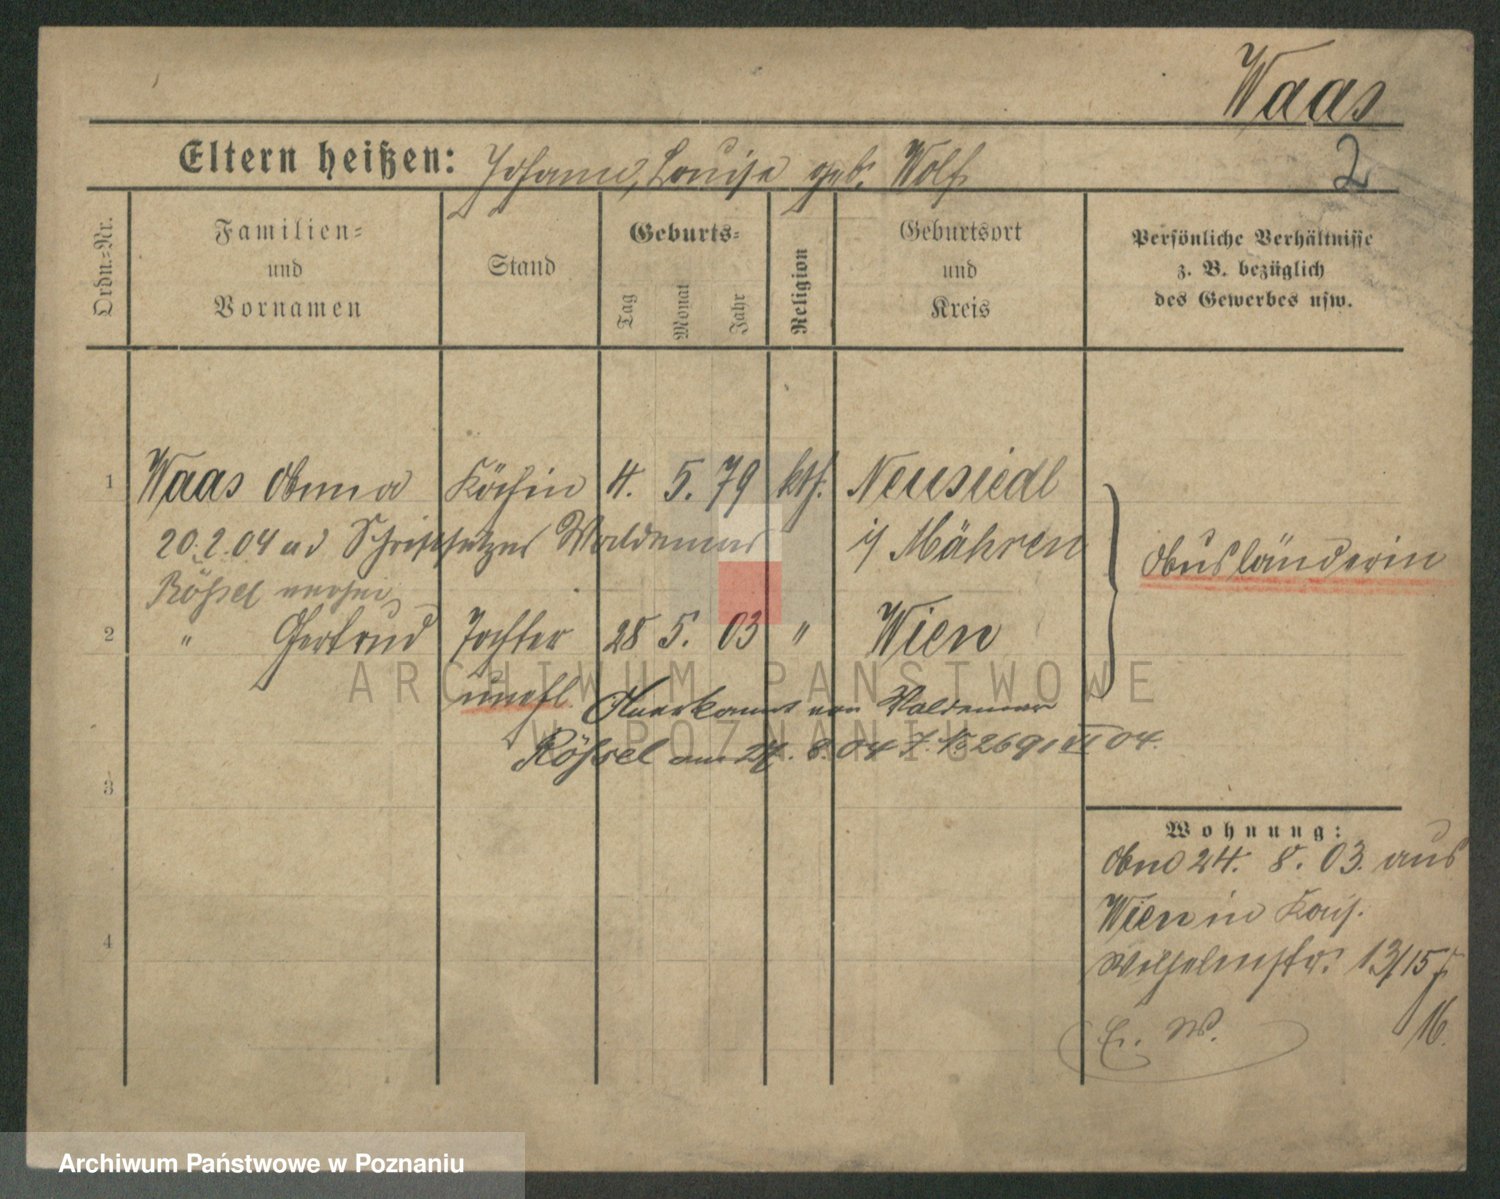 Waas
2
Eltern heißen: Johann, Louise geb. Wolf
Ordn.-Nr.
Familien- und Vornamen
Stand
Geburts-
Tag
Monat
Jahr
Religion
Geburtsort und Kreis
Persönliche Verhältnisse
z. B. bezüglich
des Gewerbes usw.
1 Waas Anna Köchin 4. 5. 79 kth. Neusiedl
20.2.04 a d Schriftsetzer Waldemar i/ Mähren
Ausländerin
Rößel verhei
2 " Gertrud Tochter 28 5. 03 " Wien
unehl Anerkannt von Waldemar
Rößel am 24. 8. 04 J. No 2691 VI 04.
3
4
Wohnung:
An 24. 8. 03. aus
Wien in Kais.
Wilhelmstr. 13/15 b
E. W. 16.
ARCHIWUM PAŃSTWOWE
W POZNANIU
Archiwum Państwowe w Poznaniu